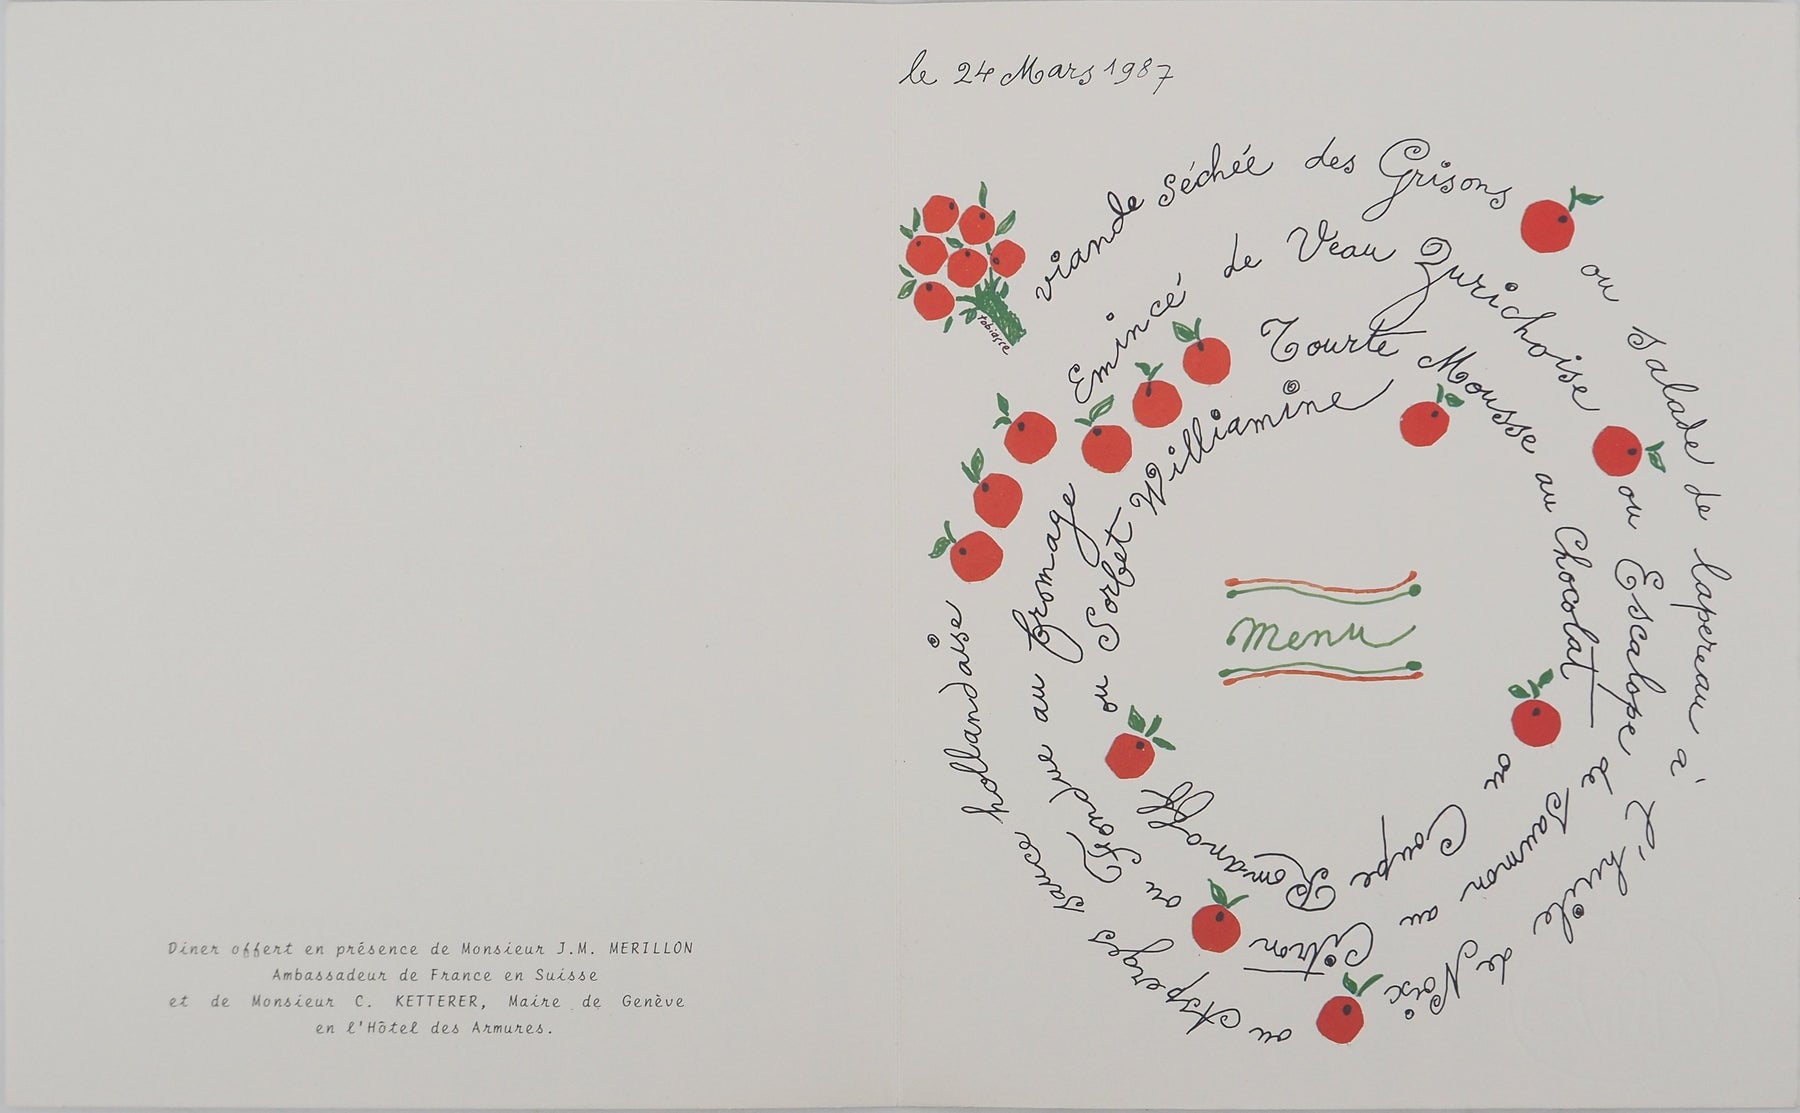 le 24 Mars 1987
tobiasse
viande séchée des Grisons
ou salade de lapereau à l'huile de Noix
ou Asperges sauce hollandaise
Emincé de Veau Zurichoise
ou Escalope de Saumon au Citron
ou Fondue au fromage
Tourte Mousse au Chocolat
ou Coupe Romanoff
ou Sorbet Williamine
menu
Dîner offert en présence de Monsieur J.M. MERILLON
Ambassadeur de France en Suisse
et de Monsieur C. KETTERER, Maire de Genève
en l'Hôtel des Armures.